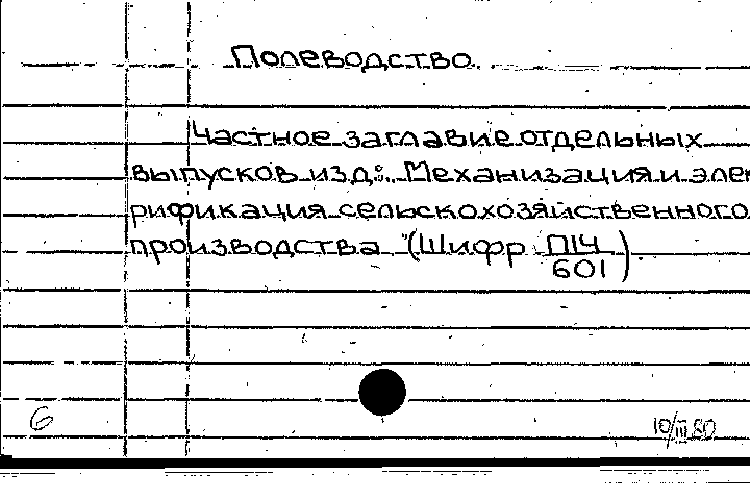 Полеводство.
Частное заглавие отдельных
выпусков изд.: Механизация и элек
рификация сельскохозяйственного
производства (Шифр П14
601)
6
10/III 80